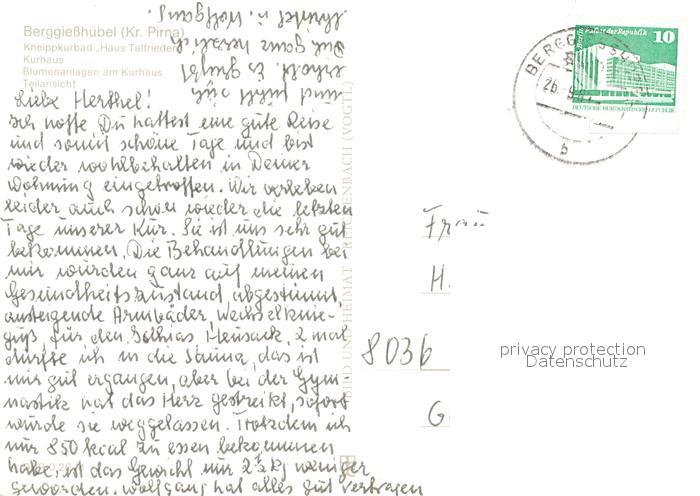 Berggießhübel (Kr. Pirna)
Kneippkurbad „Haus Talfrieden“
Kurhaus
Blumenanlagen am Kurhaus
Teilansicht
Liebe Herthel!
Ich hoffe, Du hattest eine gute Reise
und somit schöne Tage und bist
wieder wohlbehalten in Deiner
Wohnung eingetroffen. Wir verleben
leider auch schon wieder die letzten
Tage unserer Kur. Sie ist uns sehr gut
bekommen. Die Behandlungen bei
mir wurden ganz auf meinen
Gesundheitszustand abgestimmt,
ansteigende Armbäder, Wechselknie-
guß, für den Heusack, 2 mal
dürfte ich in die Sauna, das ist
mir gut ergangen, aber bei der Gym
nastik hat das Herz gestreikt, sofort
wurde sie weggelassen. Trotzdem ich
nur 850 kcal zu essen bekommen
habe, ist das Gewicht nur 2½ kg weniger
geworden. Wolfgang hat alles gut vertragen
und fühlt sich
erholt. Es grüßt
Dich ganz herzlich
u. Wolfgang.
BILD UND HEIMAT REICHENBACH (VOGTL)
Frau
H.
8036
G
BERGG
26.
b
Berlin Palast der Republik 10
DEUTSCHE DEMOKRATISCHE REPUBLIK
privacy protection
Datenschutz